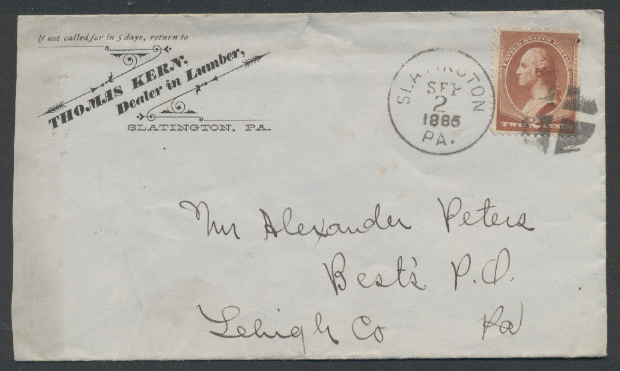 If not called for in 5 days, return to
THOMAS KERN,
Dealer in Lumber,
SLATINGTON, PA.
SLATINGTON
SEP
2
1885
PA.
TWO CENTS
Mr Alexander Peters
Best's P.O.
Lehigh Co Pa